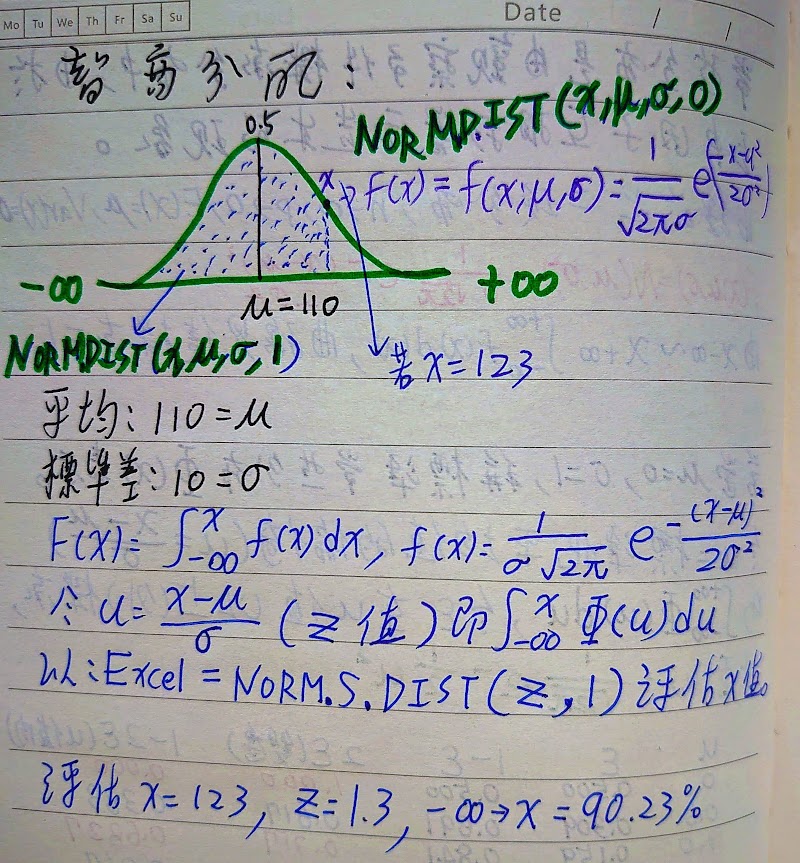 Mo Tu We Th Fr Sa Su
Date / /
智商分配:
0.5
NORMDIST(x,μ,σ,0)
x
F(x)=f(x;μ,σ)=1/√2πσ e(-x-μ²/2σ²)
-∞
+∞
μ=110
NORMDIST(x,μ,σ,1)
若x=123
平均:110=μ
標準差:10=σ
F(x)=∫-∞^x f(x)dx, f(x)=1/σ√2π e-(x-μ)²/2σ²
令u=x-μ/σ (z值)即∫-∞^x Φ(u)du
以:Excel=NORM.S.DIST(z,1)評估x值。
評估x=123, z=1.3, -∞→x=90.23%